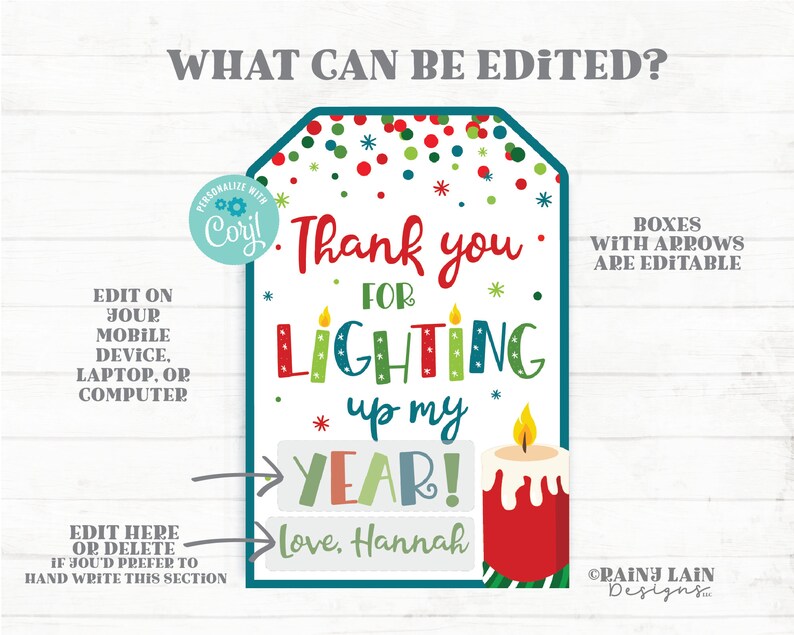 WHAT CAN BE EDITED?
PERSONALIZE WITH
Corjl
Thank you
FOR
LIGHTING
up my
YEAR!
Love, Hannah
BOXES
WITH ARROWS
ARE EDITABLE
EDIT ON
YOUR
MOBILE
DEVICE,
LAPTOP, OR
COMPUTER
EDIT HERE
OR DELETE
IF YOU'D PREFER TO
HAND WRITE THIS SECTION
©RAINY LAIN
Designs LLC